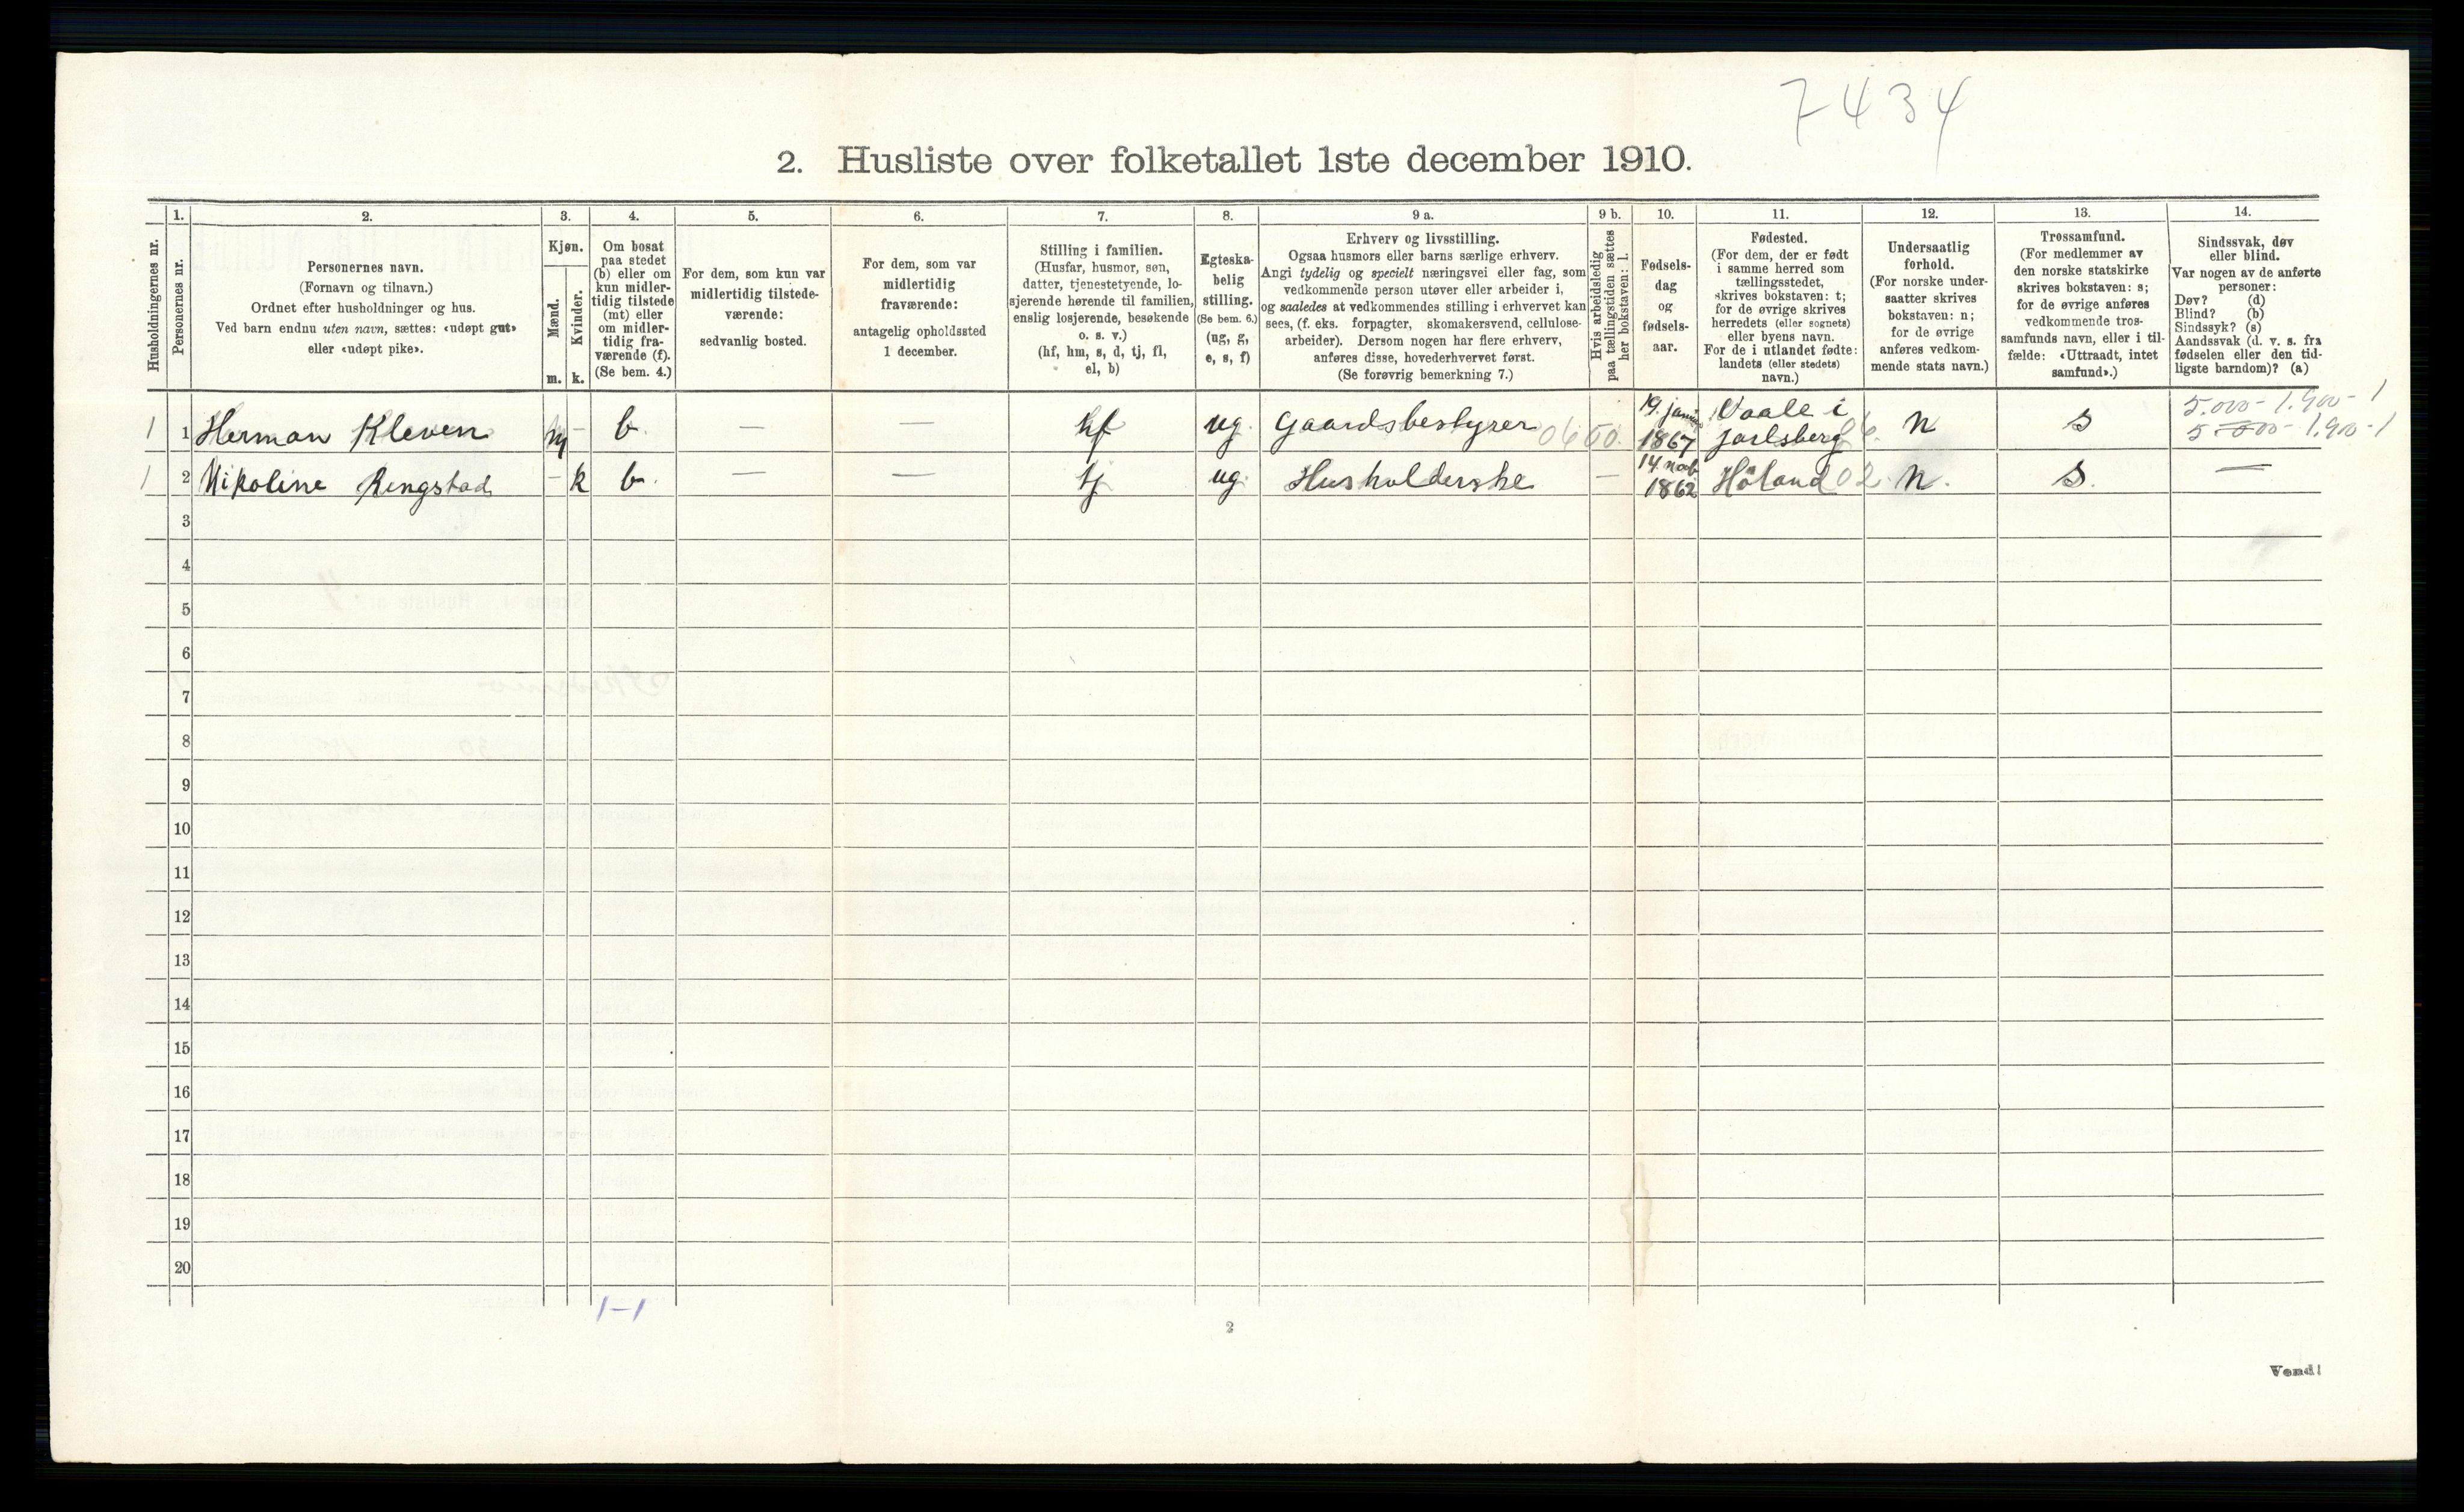 7434
2. Husliste over folketallet 1ste december 1910.
Husholdningernes nr.
1.
Personernes nr.
2.
Personernes navn.
(Fornavn og tilnavn.)
Ordnet efter husholdninger og hus.
Ved barn endnu uten navn, sættes: «udøpt gut»
eller «udøpt pike».
3.
Kjøn.
Mænd.
Kvinder.
m.
k.
4.
Om bosat
paa stedet
(b) eller om
kun midler-
tidig tilstede
(mt) eller
om midler-
tidig fra-
værende (f).
(Se bem. 4.)
5.
For dem, som kun var
midlertidig tilstede-
værende:
sedvanlig bosted.
6.
For dem, som var
midlertidig
fraværende:
antagelig opholdssted
1 december.
7.
Stilling i familien.
(Husfar, husmor, søn,
datter, tjenestetyende, lo-
sjerende hørende til familien,
enslig losjerende, besøkende
o. s. v.)
(hf, hm, s, d, tj, fl,
el, b)
8.
Egteska-
belig
stilling.
(Se bem. 6.)
(ug, g,
e, s, f)
9 a.
Erhverv og livsstilling.
Ogsaa husmors eller barns særlige erhverv.
Angi tydelig og specielt næringsvei eller fag, som
vedkommende person utøver eller arbeider i,
og saaledes at vedkommendes stilling i erhvervet kan
sees, (f. eks. forpagter, skomakersvend, cellulose-
arbeider). Dersom nogen har flere erhverv,
anføres disse, hovederhvervet først.
(Se forøvrig bemerkning 7.)
9 b.
Hvis arbeidsledig
paa tællingstiden sættes
her bokstaven: l.
10.
Fødsels-
dag
og
fødsels-
aar.
11.
Fødested.
(For dem, der er født
i samme herred som
tællingsstedet,
skrives bokstaven: t;
for de øvrige skrives
herredets (eller sognets)
eller byens navn.
For de i utlandet fødte:
landets (eller stedets)
navn.)
12.
Undersaatlig
forhold.
(For norske under-
saatter skrives
bokstaven: n;
for de øvrige
anføres vedkom-
mende stats navn.)
13.
Trossamfund.
(For medlemmer av
den norske statskirke
skrives bokstaven: s;
for de øvrige anføres
vedkommende tros-
samfunds navn, eller i til-
fælde: «Uttraadt, intet
samfund».)
14.
Sindssvak, døv
eller blind.
Var nogen av de anførte
personer:
Døv? (d)
Blind? (b)
Sindssyk? (s)
Aandssvak (d. v. s. fra
fødselen eller den tid-
ligste barndom)? (a)
1 1 Herman Kleven m – b. — — hf ug. Gaardsbestyrer 0400. 19. januar 1867 Vaale i Jarlsberg 06. n s 5.000 - 1.900 - 1
5000 - 1.900 - 1
1 2 Nikoline Ringstad – k b. — — tj ug. Husholderske — 14. novb 1862 Höland 02. n. s. —
3
4
5
6
7
8
9
10
11
12
13
14
15
16
17
18
19
20
1–1
2
Vend!